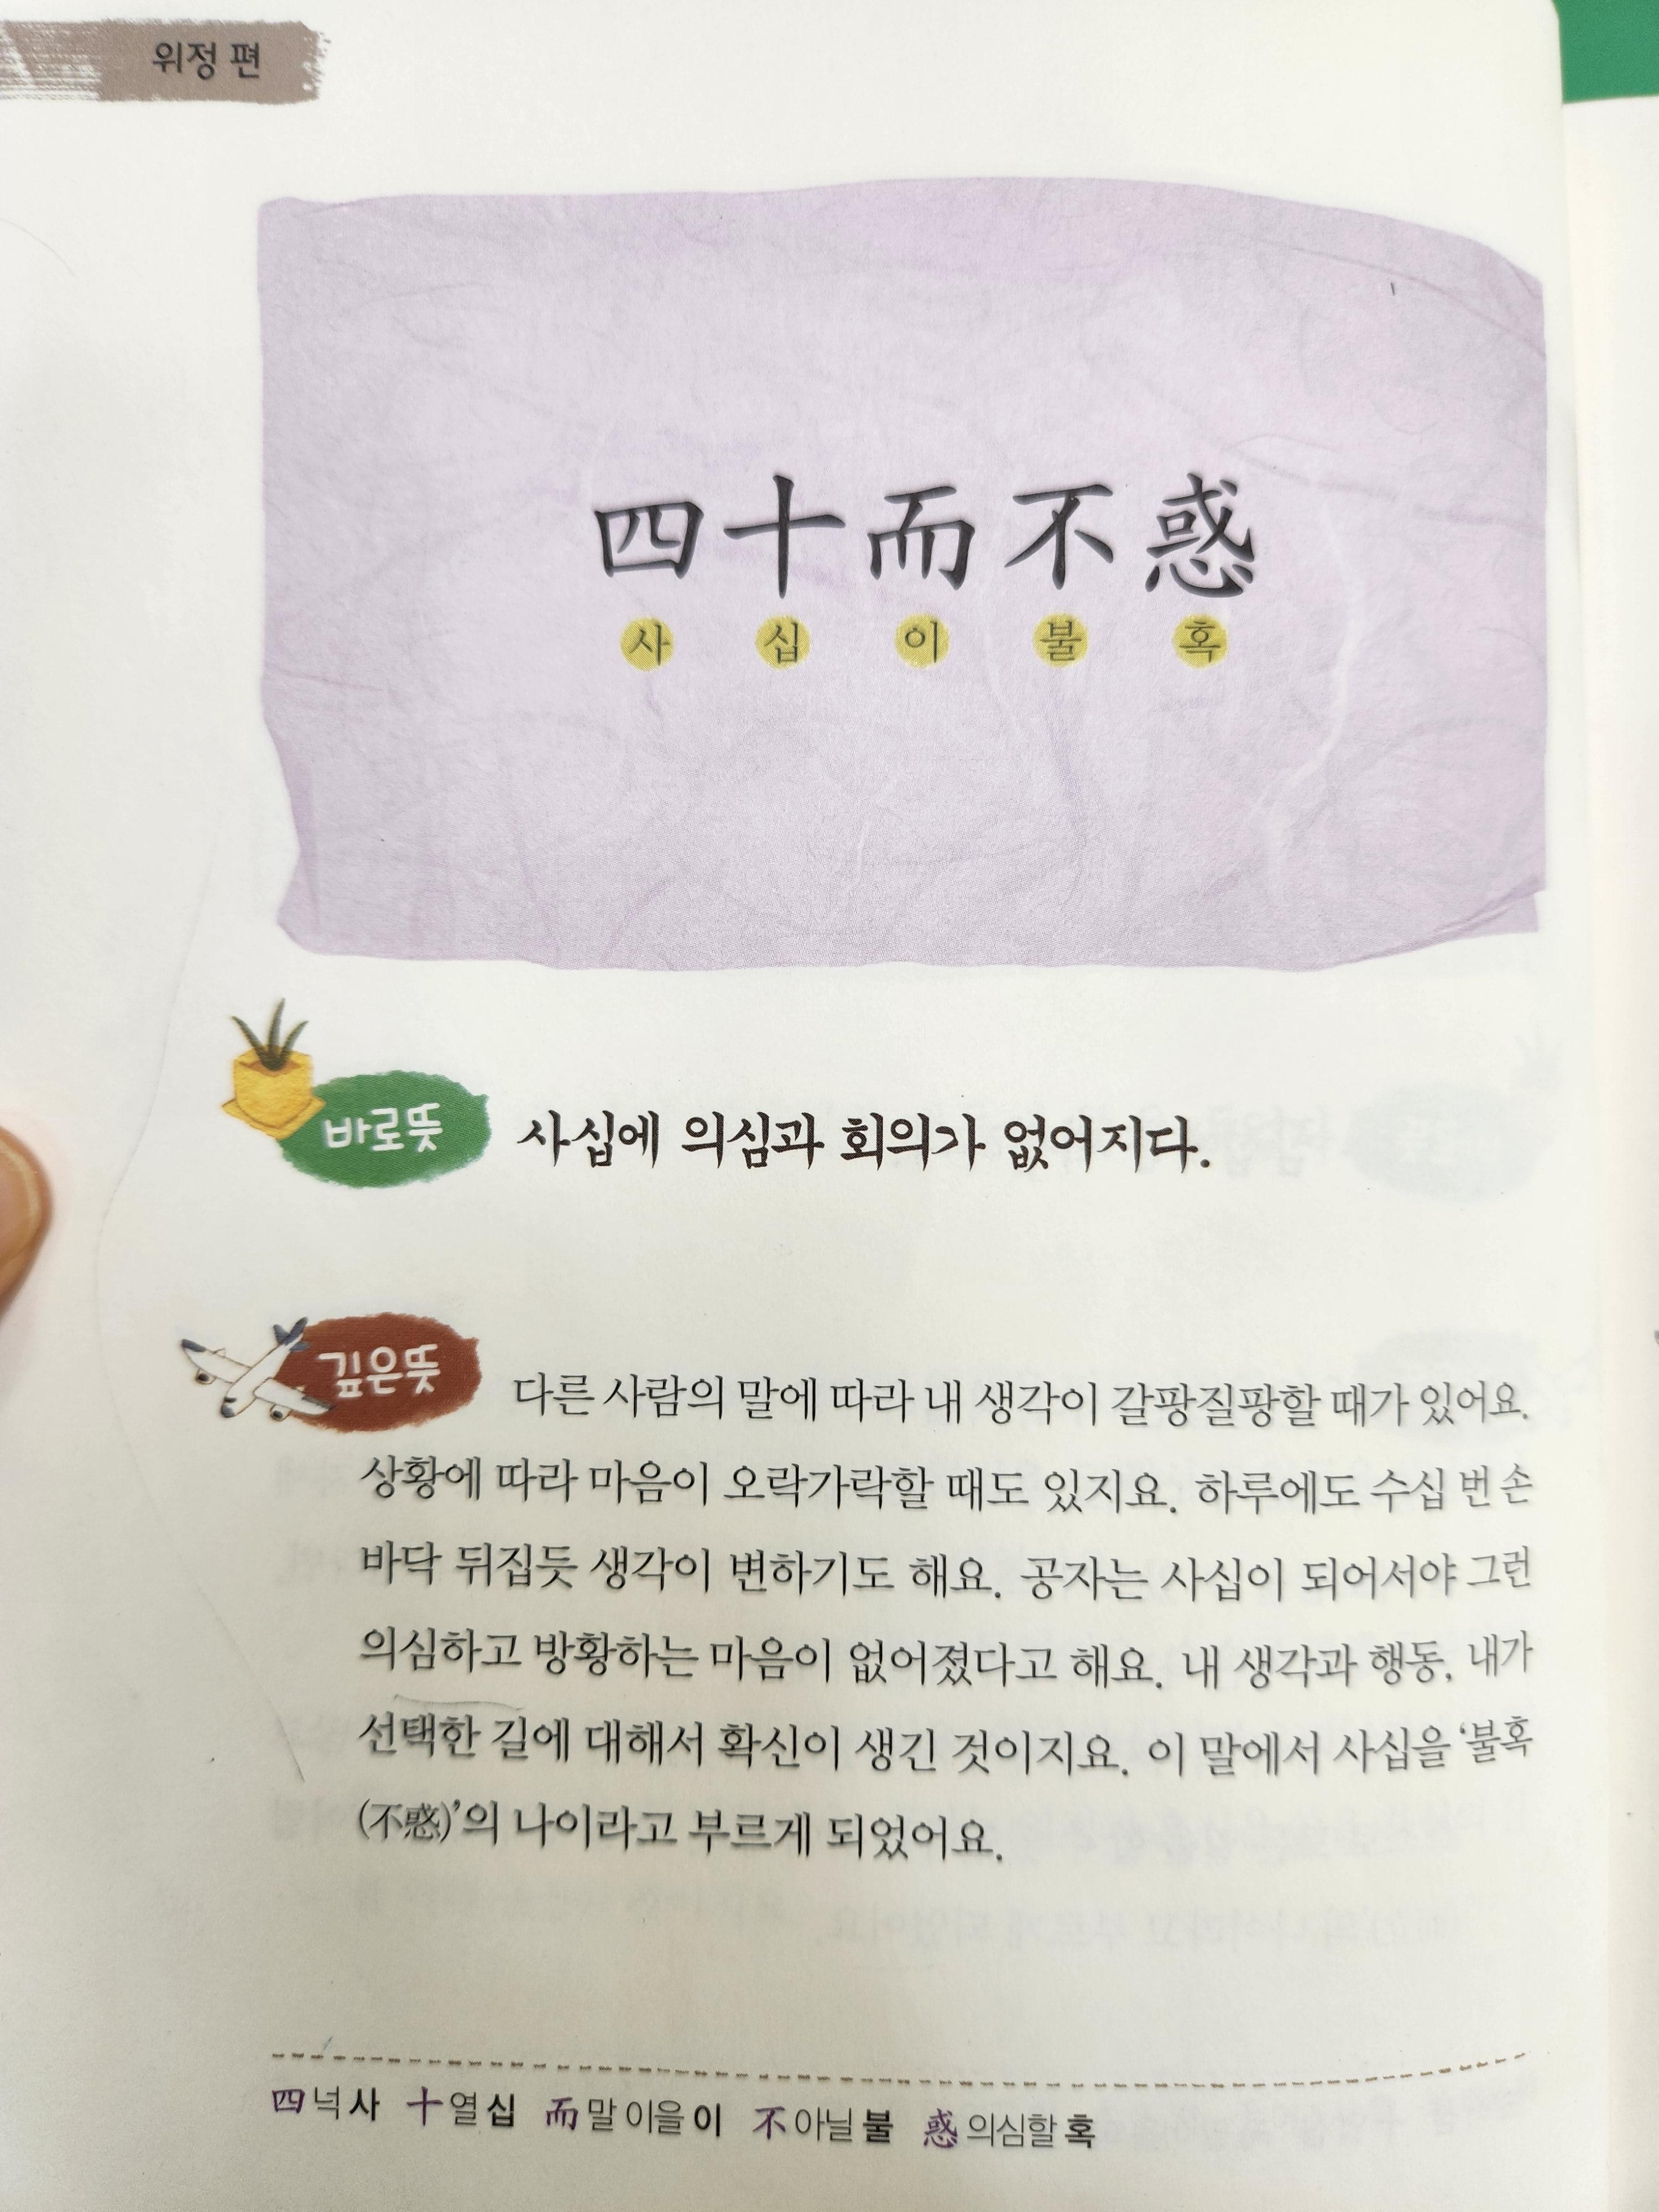 위정 편
四十而不惑
사 십 이 불 혹
바로뜻 사십에 의심과 회의가 없어지다.
깊은뜻 다른 사람의 말에 따라 내 생각이 갈팡질팡할 때가 있어요.
상황에 따라 마음이 오락가락할 때도 있지요. 하루에도 수십 번 손
바닥 뒤집듯 생각이 변하기도 해요. 공자는 사십이 되어서야 그런
의심하고 방황하는 마음이 없어졌다고 해요. 내 생각과 행동, 내가
선택한 길에 대해서 확신이 생긴 것이지요. 이 말에서 사십을 ‘불혹
(不惑)’의 나이라고 부르게 되었어요.
四 넉 사 十 열 십 而 말 이을 이 不 아닐 불 惑 의심할 혹